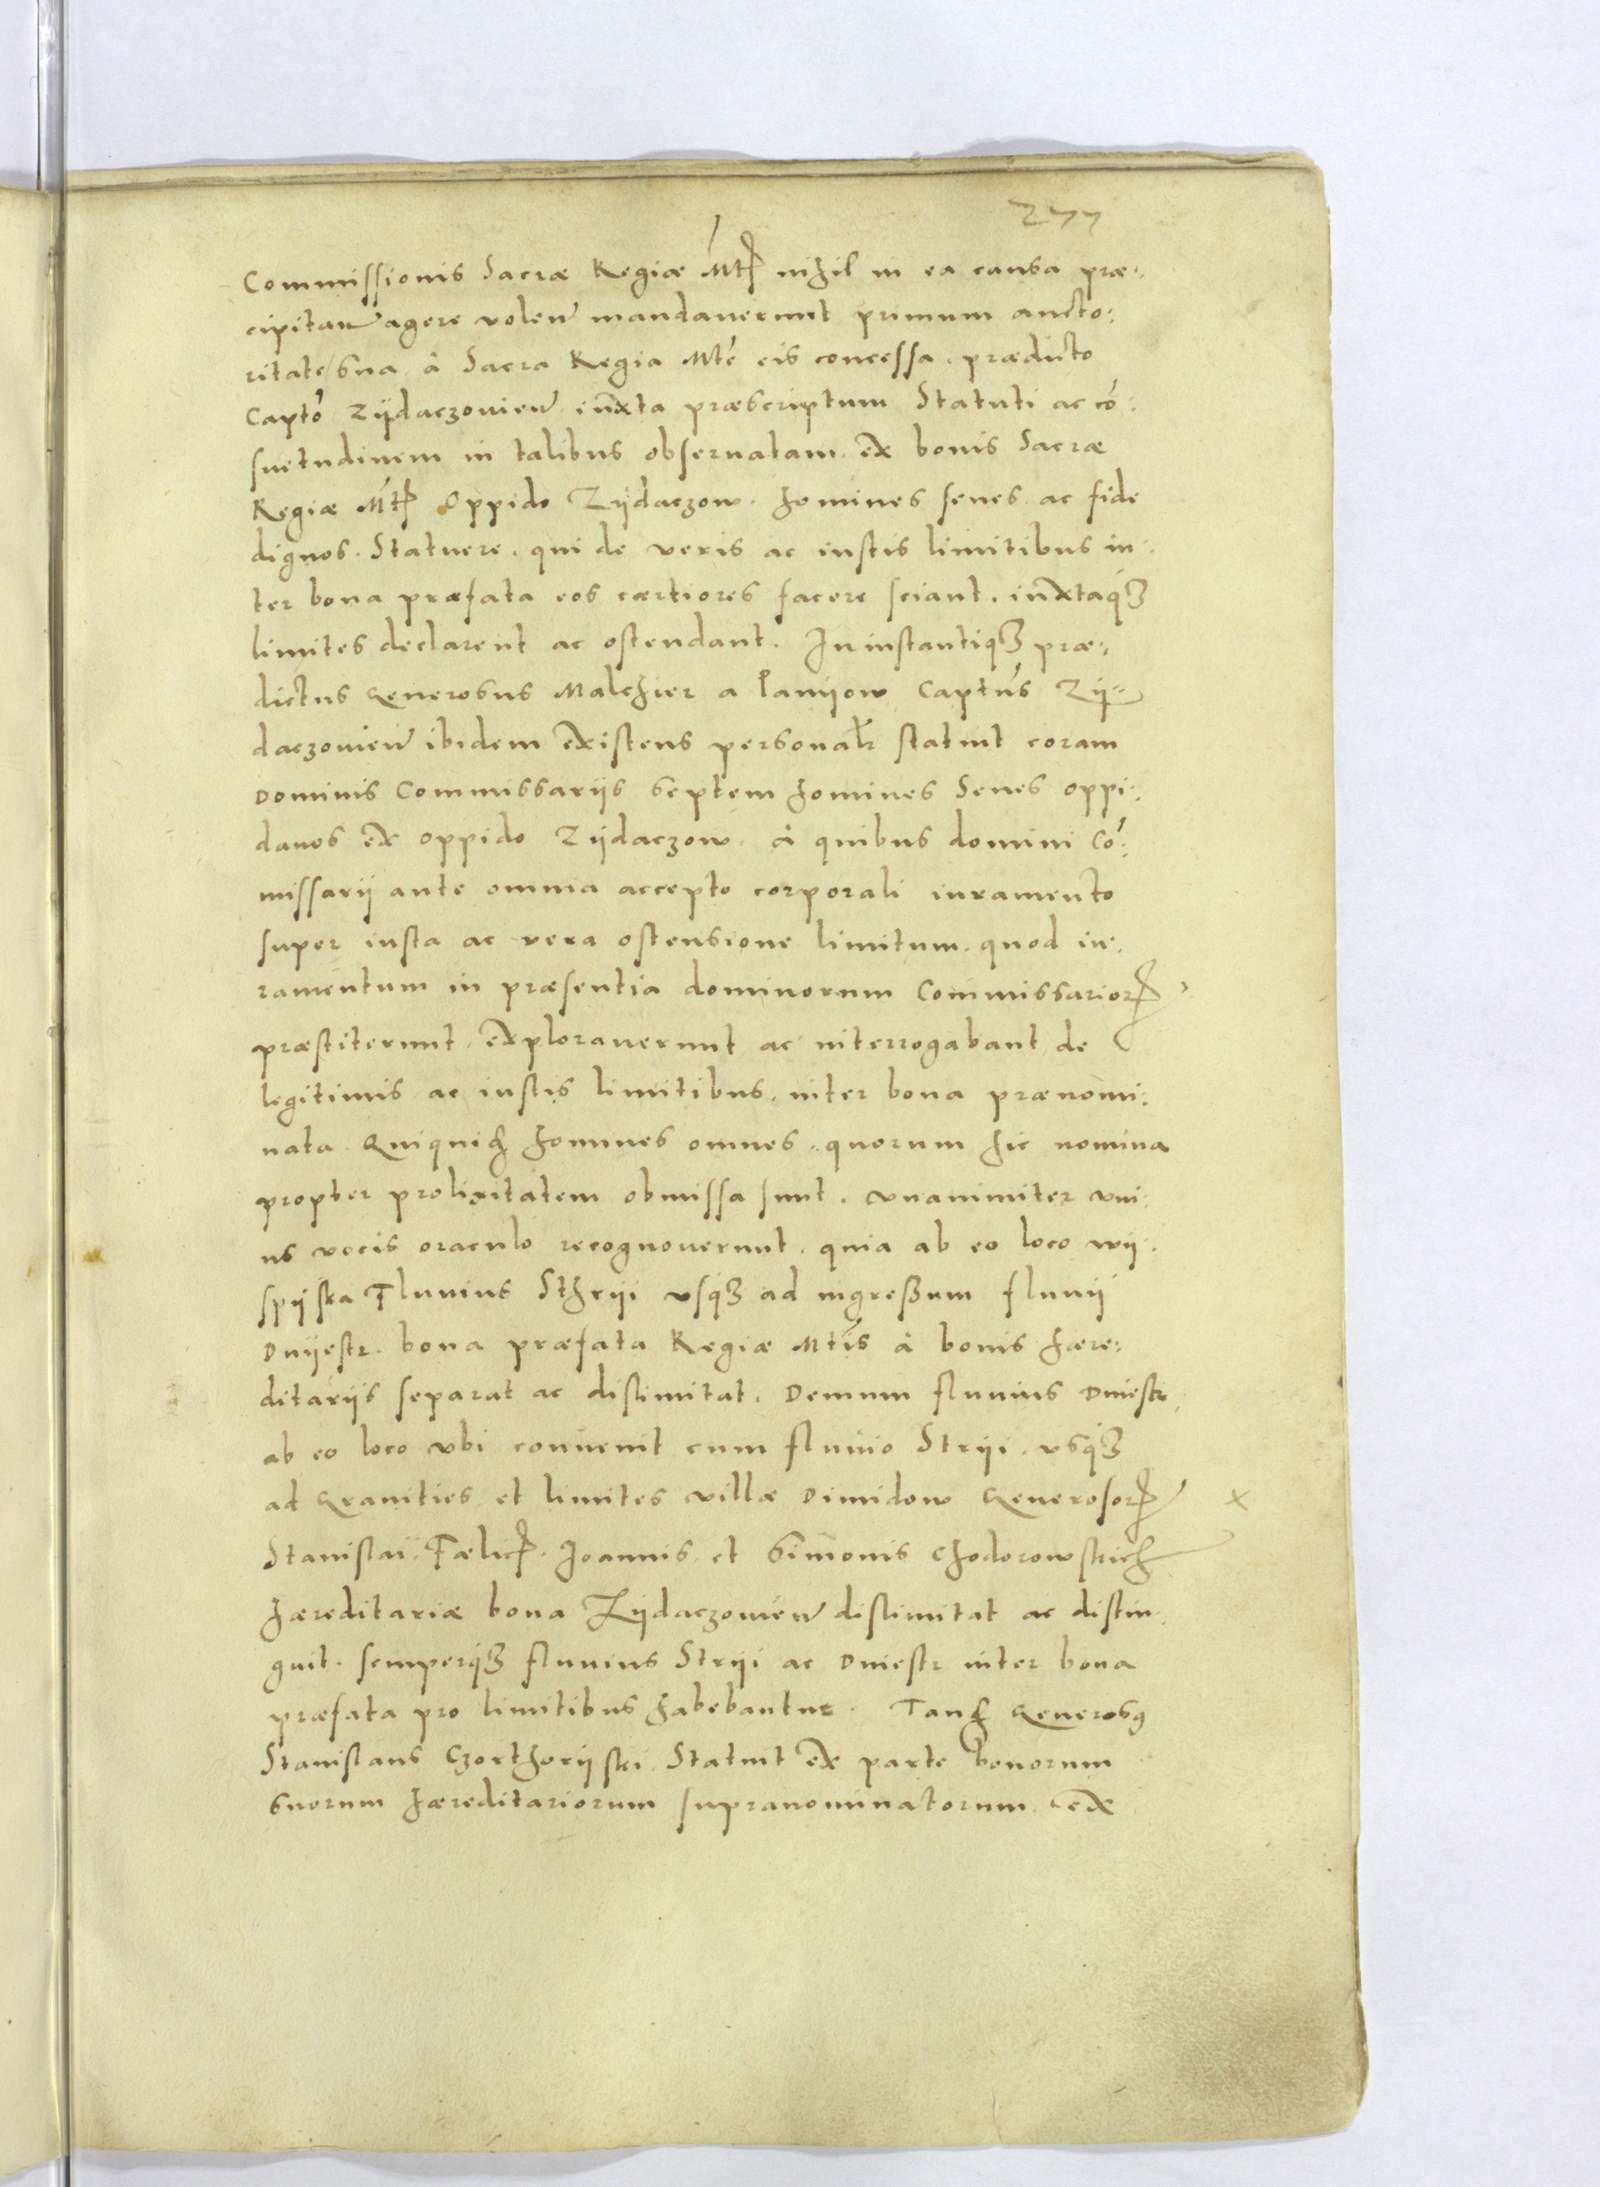 277
Commissionis Sacræ Regiæ Mtis nihil in ea causa præ-
cipitan agere volen mandaverunt primum aucto-
ritate sua à Sacra Regia Mte eis concessa prædicto
Capto Zijdaczovien iuxta præscriptum Statuti ac co-
suetudinem in talibus obseruatam ex bonis Sacræ
Regiæ Mtis Oppido Zijdaczow homines senes ac fide
dignos. Statuere. qui de veris ac iustis limitibus in-
ter bona præfata eos cærtiores facere sciant. iuxtaqz
limites declarent ac ostendant. In instantiqz præ-
dictus Generosus Malcher a Paniow Captus Zij-
daczovien ibidem existens personalr statuit coram
Dominis Commissariis septem homines Senes oppi-
danos ex oppido Zijdaczow. à quibus domini Co-
missarij ante omnia accepto corporali iuramento
super iusta ac vera ostensione limitum. quod iu-
ramentum in præsentia dominorum Commissarior
præstiterunt. exploraverunt ac interrogabant de
legitimis ac iustis limitibus. inter bona prænomi-
nata Quiquid homines omnes. quorum hic nomina
propter prolixitatem obmissa sunt. vnanimiter vni-
us vocis oraculo recognoverunt. quia ab eo loco wij-
spijska Fluuius Sthrii vsqz ad ingreßum fluuij
Dnijestr. bona præfata Regiæ Mtis à bonis hære-
ditariis separat ac dislimitat. Demum fluuius Dniestr
ab eo loco vbi conuenit cum fluuio Striji. vsqz
ad Granities et limites villæ Dimidow Generosor
Stanislai. Fælicis. Joannis et Simonis Chodorowskich
hæreditariæ bona Zijdaczovien dislimitat ac distin-
guit. semperqz fluuius Striji ac Dniestr inter bona
præfata pro limitibus habebantur. Tand Generosus
Stanislaus Czorthorijski. Statuit ex parte bonorum
suorum hæreditariorum supranominatorum ex